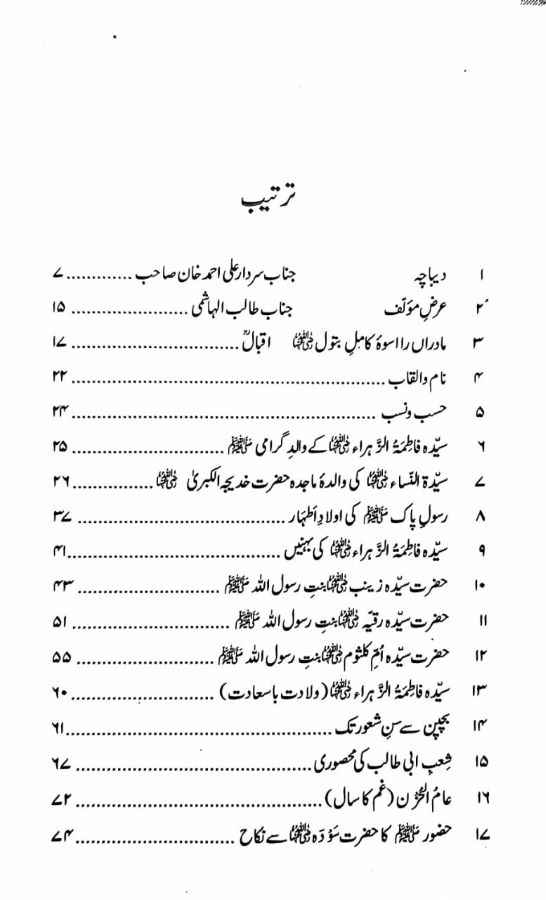 ترتیب
۱ دیباچہ جناب سردار علی احمد خان صاحب ............. ۷
۲ عرضِ مؤلّف جناب طالب الہاشمی ....................... ۱۵
۳ مادراں را اسوۂ کامل بتول رضی اللہ عنہا اقبالؒ ................................. ۱۷
۴ نام و القاب .............................................................. ۲۲
۵ حسب و نسب ............................................................ ۲۴
۶ سیّدہ فاطِمَۃُ الزَّہراء رضی اللہ عنہا کے والدِ گرامی ﷺ .............................. ۲۵
۷ سیّدۃ النّساء رضی اللہ عنہا کی والدۂ ماجدہ حضرت خدیجہ الکبریٰ رضی اللہ عنہا ................ ۲۶
۸ رسولِ پاک ﷺ کی اولادِ اَطہار ......................................... ۳۷
۹ سیّدہ فاطِمَۃُ الزَّہراء رضی اللہ عنہا کی بہنیں .......................................... ۴۱
۱۰ حضرت سیّدہ زینب رضی اللہ عنہا بنتِ رسول اللہ ﷺ ............................ ۴۳
۱۱ حضرت سیّدہ رقیّہ رضی اللہ عنہا بنتِ رسول اللہ ﷺ ............................... ۵۱
۱۲ حضرت سیّدہ اُمِّ کلثوم رضی اللہ عنہا بنتِ رسول اللہ ﷺ ........................... ۵۵
۱۳ سیّدہ فاطِمَۃُ الزَّہراء رضی اللہ عنہا (ولادت باسعادت) ............................ ۶۰
۱۴ بچپن سے سنِ شعور تک .................................................... ۶۱
۱۵ شِعبِ ابی طالب کی محصوری ............................................... ۶۷
۱۶ عامُ الحُزن (غم کا سال) ............................................ ۷۲
۱۷ حضور ﷺ کا حضرت سَوْدَہ رضی اللہ عنہا سے نکاح ............................... ۷۴